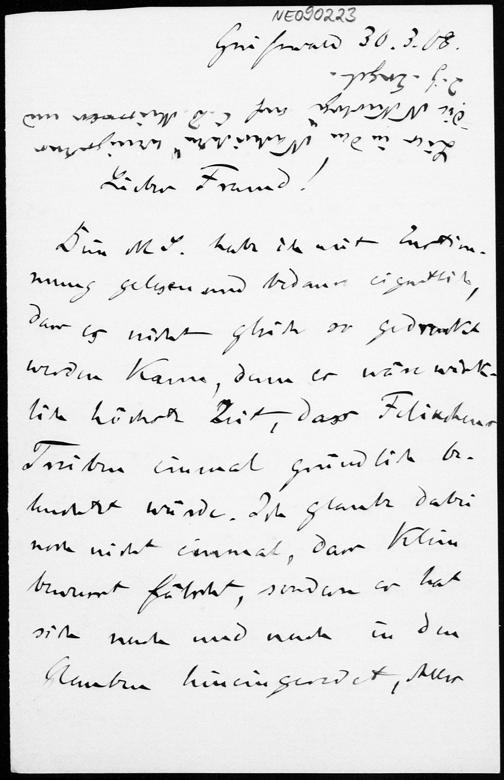 NE090223
Greifswald 30.3.08.
Lies in den "Nachrichten" weinigstens
die Nekrologe auf und
z. j. Engel.
Lieber Freund!
Dein M.S. habe ich mit Zustim-
mung gelesen und bedaure eigentlich,
dass es nicht gleich so gedruckt
werden kann, denn es wäre wirk-
lich höchste Zeit, dass Felixchens
Treiben einmal gründlich be-
leuchtet würde. Ich glaube dabei
noch nicht einmal, dass Klein
bewusst fälscht, sondern er hat
sich nach und nach in den
Glauben hineingeredet, dass